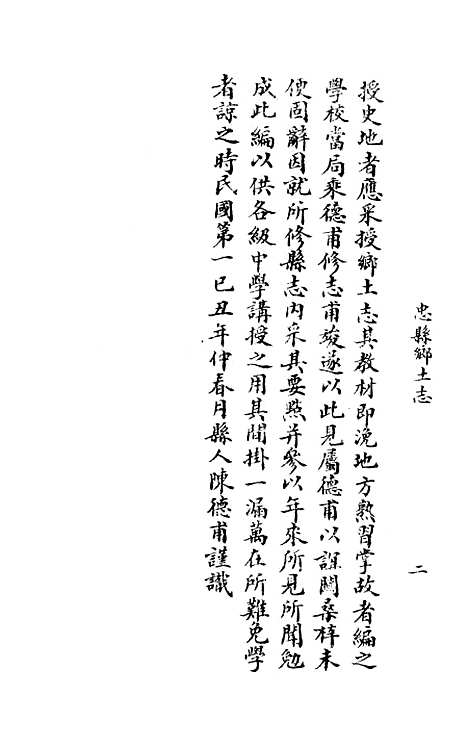 忠縣鄉土志
二
授史地者應采授鄉土志其教材即浼地方熟習掌故者編之
學校當局乘德甫修志甫竣遂以此見屬德甫以誼關桑梓未
便固辭因就所修縣志內采其要點并參以年來所見所聞勉
成此編以供各級中學講授之用其間掛一漏萬在所難免學
者諒之時民國第一已丑年仲春月縣人陳德甫謹識